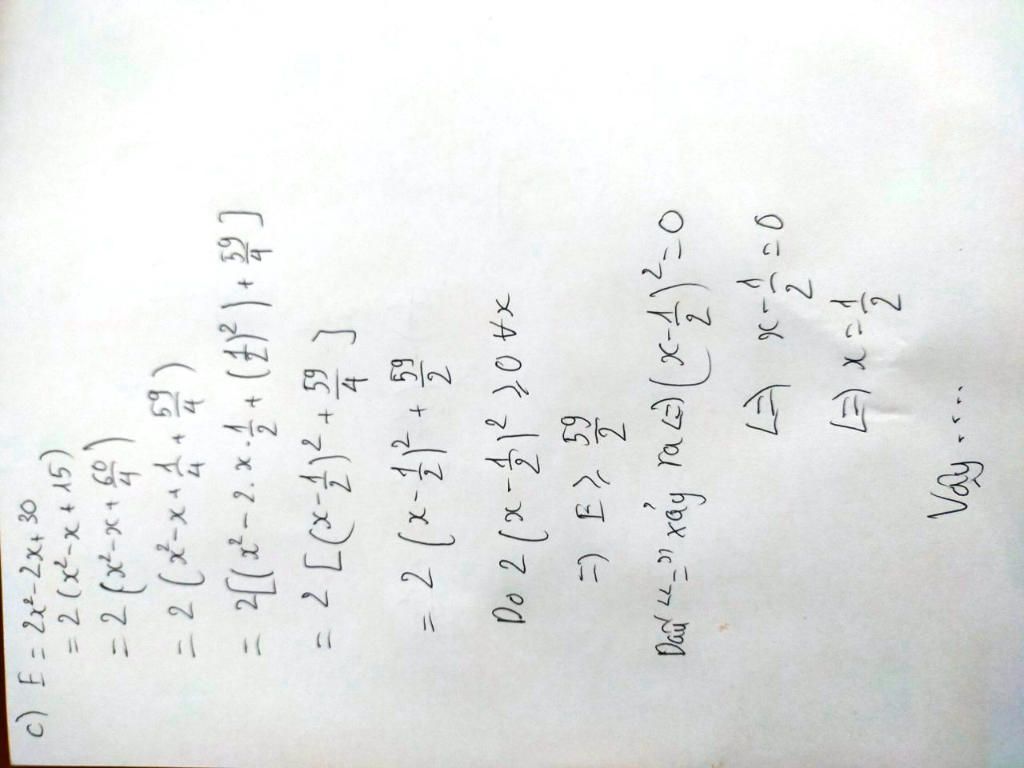 c) E = 2x² - 2x + 30
= 2 (x² - x + 15)
= 2 (x² - x + 60/4)
= 2 (x² - x + 1/4 + 59/4)
= 2[(x² - 2.x.1/2 + (1/2)²) + 59/4]
= 2 [(x - 1/2)² + 59/4]
= 2 (x - 1/2)² + 59/2
Do 2 (x - 1/2)² ⩾ 0 ∀x
=) E ⩾ 59/2
Dấu "=" xảy ra (=) (x - 1/2)² = 0
(=) x - 1/2 = 0
(=) x = 1/2
Vậy....